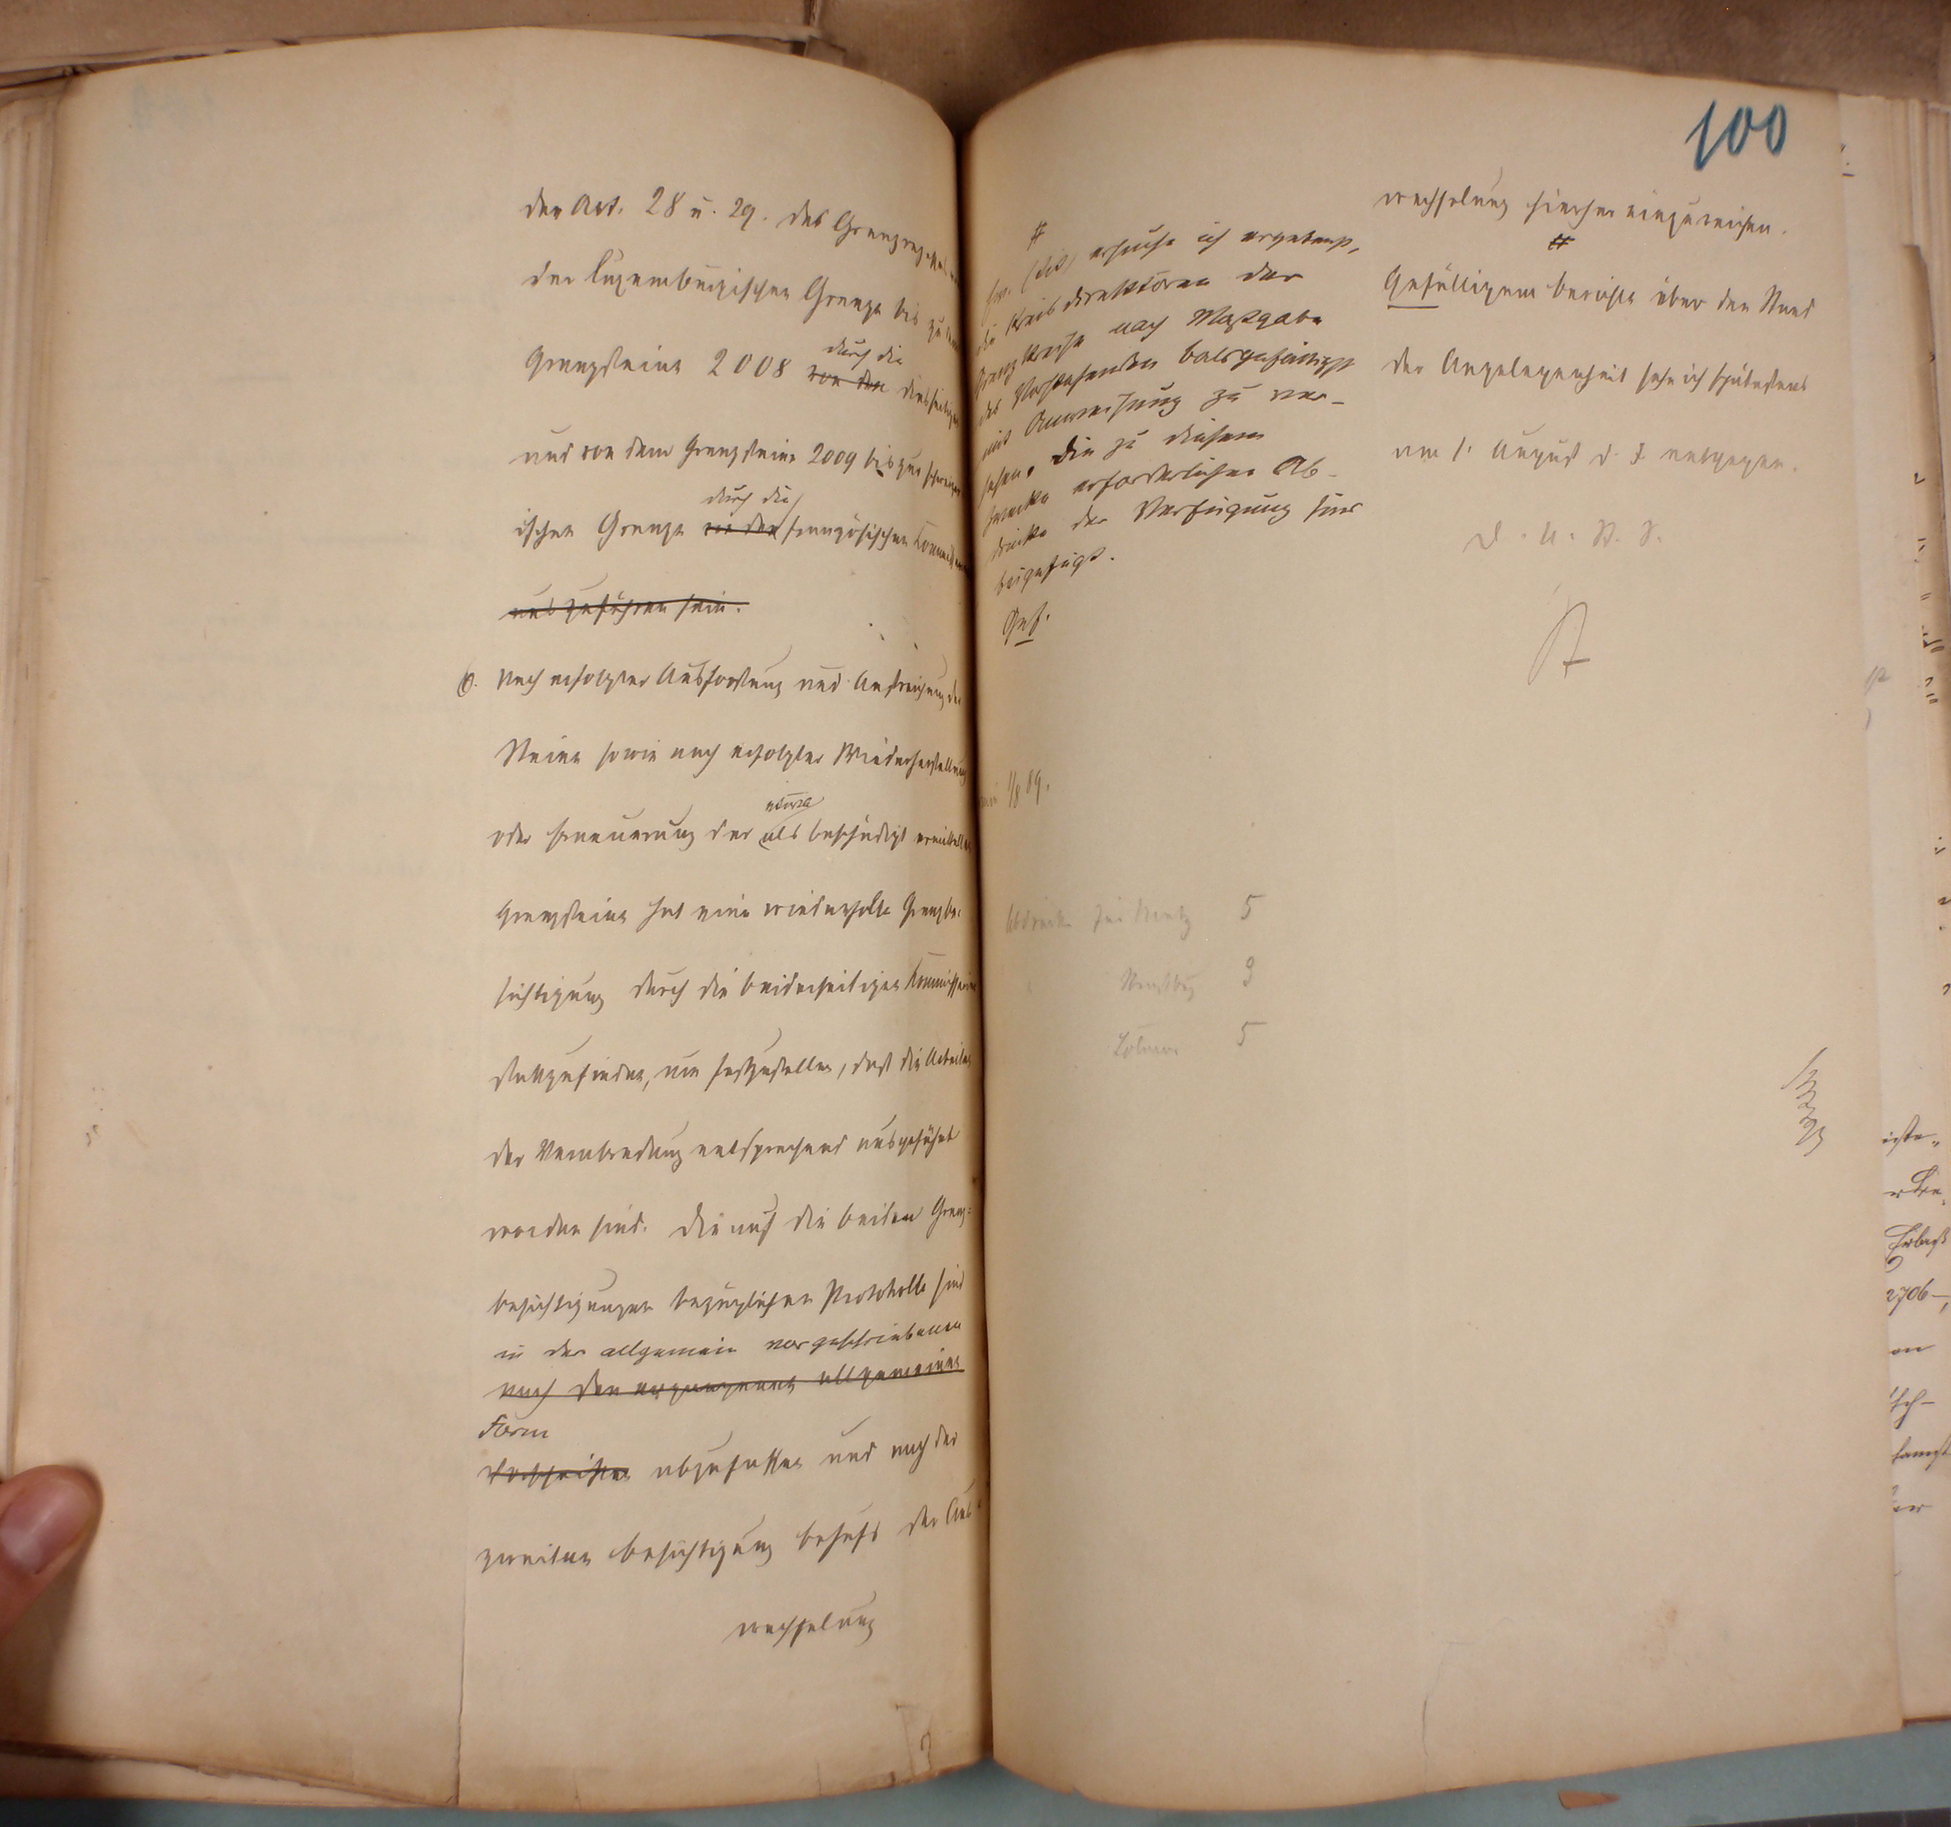 der Art. 28 u. 29. des Grenz
der Luxemburgischen Grenze bis zu dem
durch die
Grenzsteine 2008 von den diesseitigen
und von dem Grenzsteine 2009 bis zur schweizer-
durch die
ischen Grenze von den französischen Kommissaren
auszuführen sein.
6. Nach erfolgter Ausforstung und Aufreihung der
Steine sowie nach erfolgter Wiederherstellung
etwa
oder Erneuerung der als beschädigt ermittelten
Grenzsteine hat eine wiederholte Grenzbe-
sichtigung durch die beiderseitigen Kommissarien
stattzufinden, um festzustellen, daß die Arbeiten
der Verabredung entsprechend ausgeführt
worden sind. Die auf die beiden Grenz-
besichtigungen bezüglichen Protokolle sind
in der allgemein vorgeschriebenen
nach den ergangenen allgemeinen
Form
Vorschriften abzufassen und nach der
zweiten Besichtigung behufs der Aus-
wechselung
100
#
Ew. (tit) ersuche ich ergebenst,
die Kreisdirektoren der
Grenzkreise nach Maßgabe
des Vorstehenden baldgefälligst
mit Anweisung zu ver-
sehen. Die zu diesem
Zwecke erforderlichen Ab-
drücke der Verfügung sind
beigefügt.
Gef.
1/8 89.
Abdrücke für Metz 5
Straßbg 3
Colmar 5
wechselung hierher einzureichen.
#
Gefälligem Berichte über den Stand
der Angelegenheit sehe ich spätestens
am 1. August d. J. entgegen.
D. U. St. S.